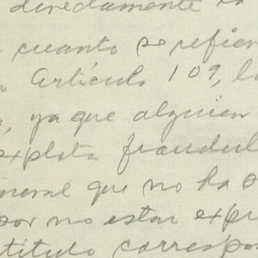 directamente
cuanto se refier
Artículo 109, l
, ya que alguien
explota fraudul
ineral que no ha o
por no estar expr
título correspo